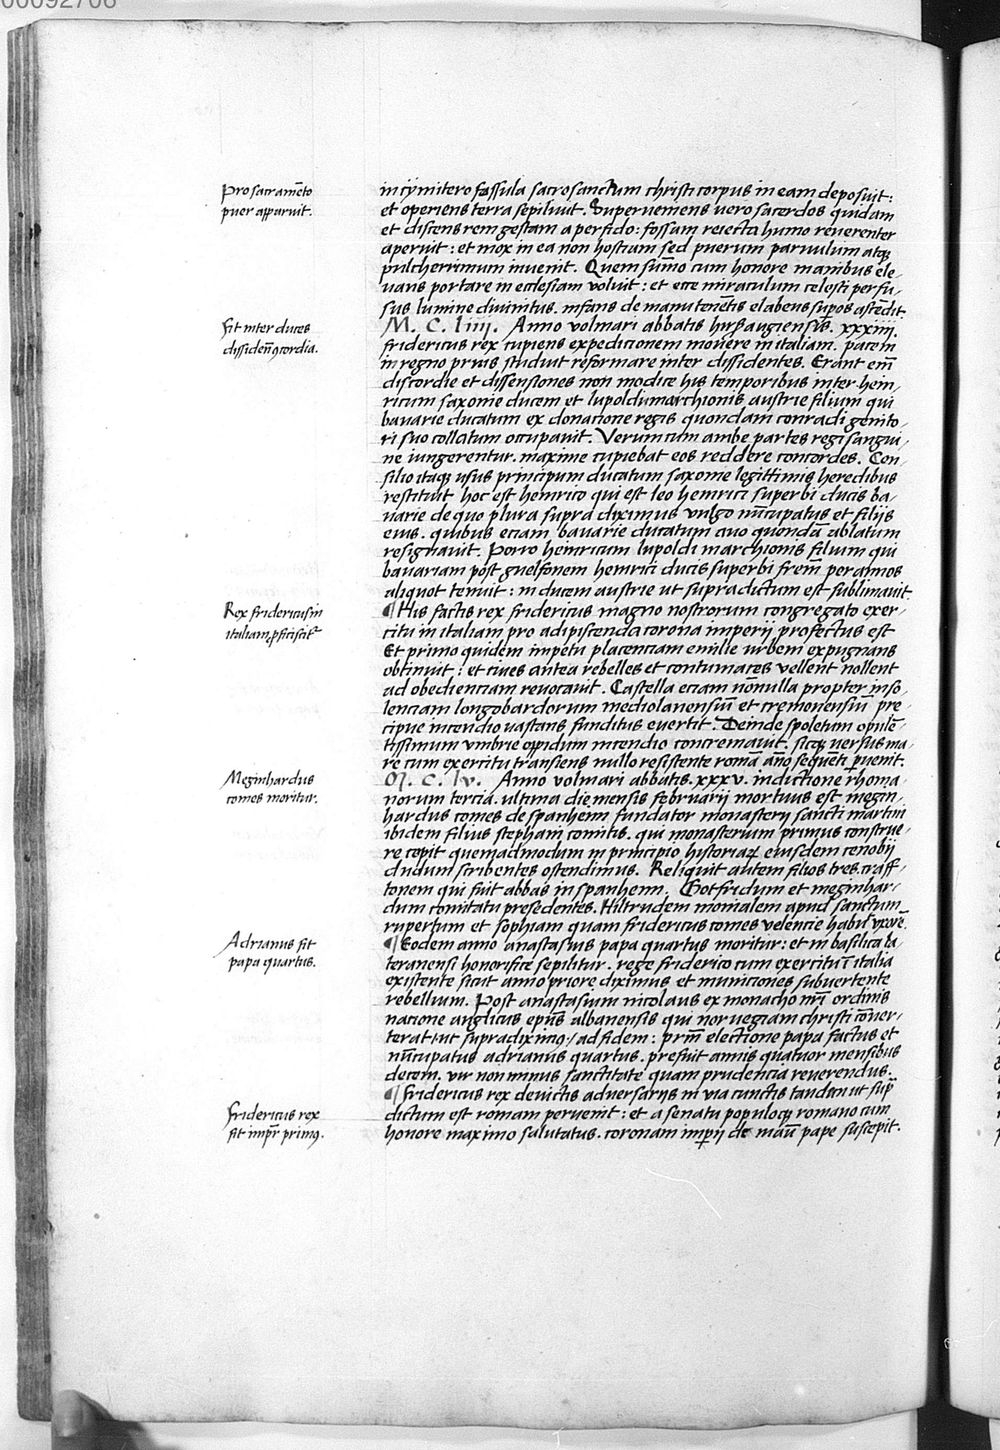 00092706
Pro sacramēto
puer apparuit.
in cymitero fassula sacrosanctum christi corpus in eam deposuit:
et operiens terra sepiliuit. Superueniens uero sacerdos quidam
et discens rem gestam a perfido: fossam reiecta humo reuerenter
aperuit: et mox in ea non hostiam sed puerum paruulum atqꝫ
pulcherrimum inuenit. Quem sum̄o cum honore manibus ele-
uans portare in ecclesiam voluit: et ecce miraculum celesti perfu-
sus lumine diuinitus. infans de manu tenētis elabens suꝑos ascēdit.
Fit inter duces
dissidenꝯcordia.
M. C. liiii. Anno volmari abbatis hirsaugiensis. xxxiiii.
fridericus rex cupiens expedicionem mouere in italiam. pacem
in regno prius studuit reformare inter dissidentes. Erant em̄
discordie et dissensiones non modice his temporibus inter hein-
ricum saxonie ducem et lupoldum marchionis austrie filium qui
bauarie ducatum ex donacione regis quondam conradi genito-
ri suo collatum occupauit. Verum cum ambe partes regi sangui-
ne iungerentur. maxime cupiebat eos reddere concordes. Con-
silio itaqꝫ usus principum ducatum saxonie legittimis heredibus
restituit hoc est heinrico qui est leo heinrici superbi ducis ba-
uarie de quo plura supra diximus vulgo nūcupatus et filijs
eius. quibus eciam bauarie ducatum auo quondā ablatum
resignauit. Porro heinricum lupoldi marchionis filium qui
bauariam post guelfonem heinrici ducis superbi frem̄ per annos
aliquot tenuit: in ducem austrie ut supradictum est sublimauit.
Rex fridericus in
italiam ꝓficiscitᵘʳ
¶ His factis rex fridericus magno nostrorum congregato exer-
citu in italiam pro adipiscenda corona imperij profectus est
Et primo quidem impetu placenciam emilie urbem expugnans
obtinuit: et ciues antea rebelles et contumaces vellent nollent
ad obedienciam reuocauit. Castella eciam nōnulla propter inso-
lenciam longobardorum mediolanensiū et cremonensiū pre-
cipue incendio uastans funditus euertit. Deinde spoletum opulē-
tissimum umbrie oppidum incendio concremauit. sicqꝫ uersus ma-
re cum exercitu transiens nullo resistente romā año sequeti ꝑuenit.
Meginhardus
comes moritur.
M. C. lv. Anno volmari abbatis. xxxv. indictione rhoma-
norum tercia. ultima die mensis februarij mortuus est megin-
hardus comes de spanheim fundator monasterij sancti martini
ibidem filius stephani comitis. qui monasterium primus construe-
re cepit quemadmodum in principio historiaꝝ eiusdem cenobij
dudum scribentes ostendimus. Reliquit autem filios tres. craff-
tonem qui fuit abbas in spanheim. Gotfridum et meginhar-
dum comitatu presedentes. Hiltrudem monialem apud sanctum
rupertum et sophiam quam fridericus comes velencie habuit vxorē.
Adrianus fit
papa quartus.
¶ Eodem anno anastasius papa quartus moritur: et in basilica la-
teranensi honorifice sepilitur. rege friderico cum exercitu ī italia
existente sicut anno priore diximus et municiones subuertente
rebellium. Post anastasium nicolaus ex monacho nr̄i ordinis
nacione anglicus ep̄us albanensis qui noruegiam christi cōuer-
terat/ut supradiximꝰ/ad fidem: per electione papa factus et
nūcupatus adrianus quartus. prefuit annis quatuor mensibus
decem. vir non minus sanctitate quam prudencia reuerendus.
Fridericus rex
fit impr̄ primꝰ.
¶ Fridericus rex deuictis aduersarijs in via cunctis tandem ut sup̄
dictum est romam peruenit: et a senatu populoqꝫ romano cum
honore maximo salutatus. coronam imꝑij de manū pape suscepit.